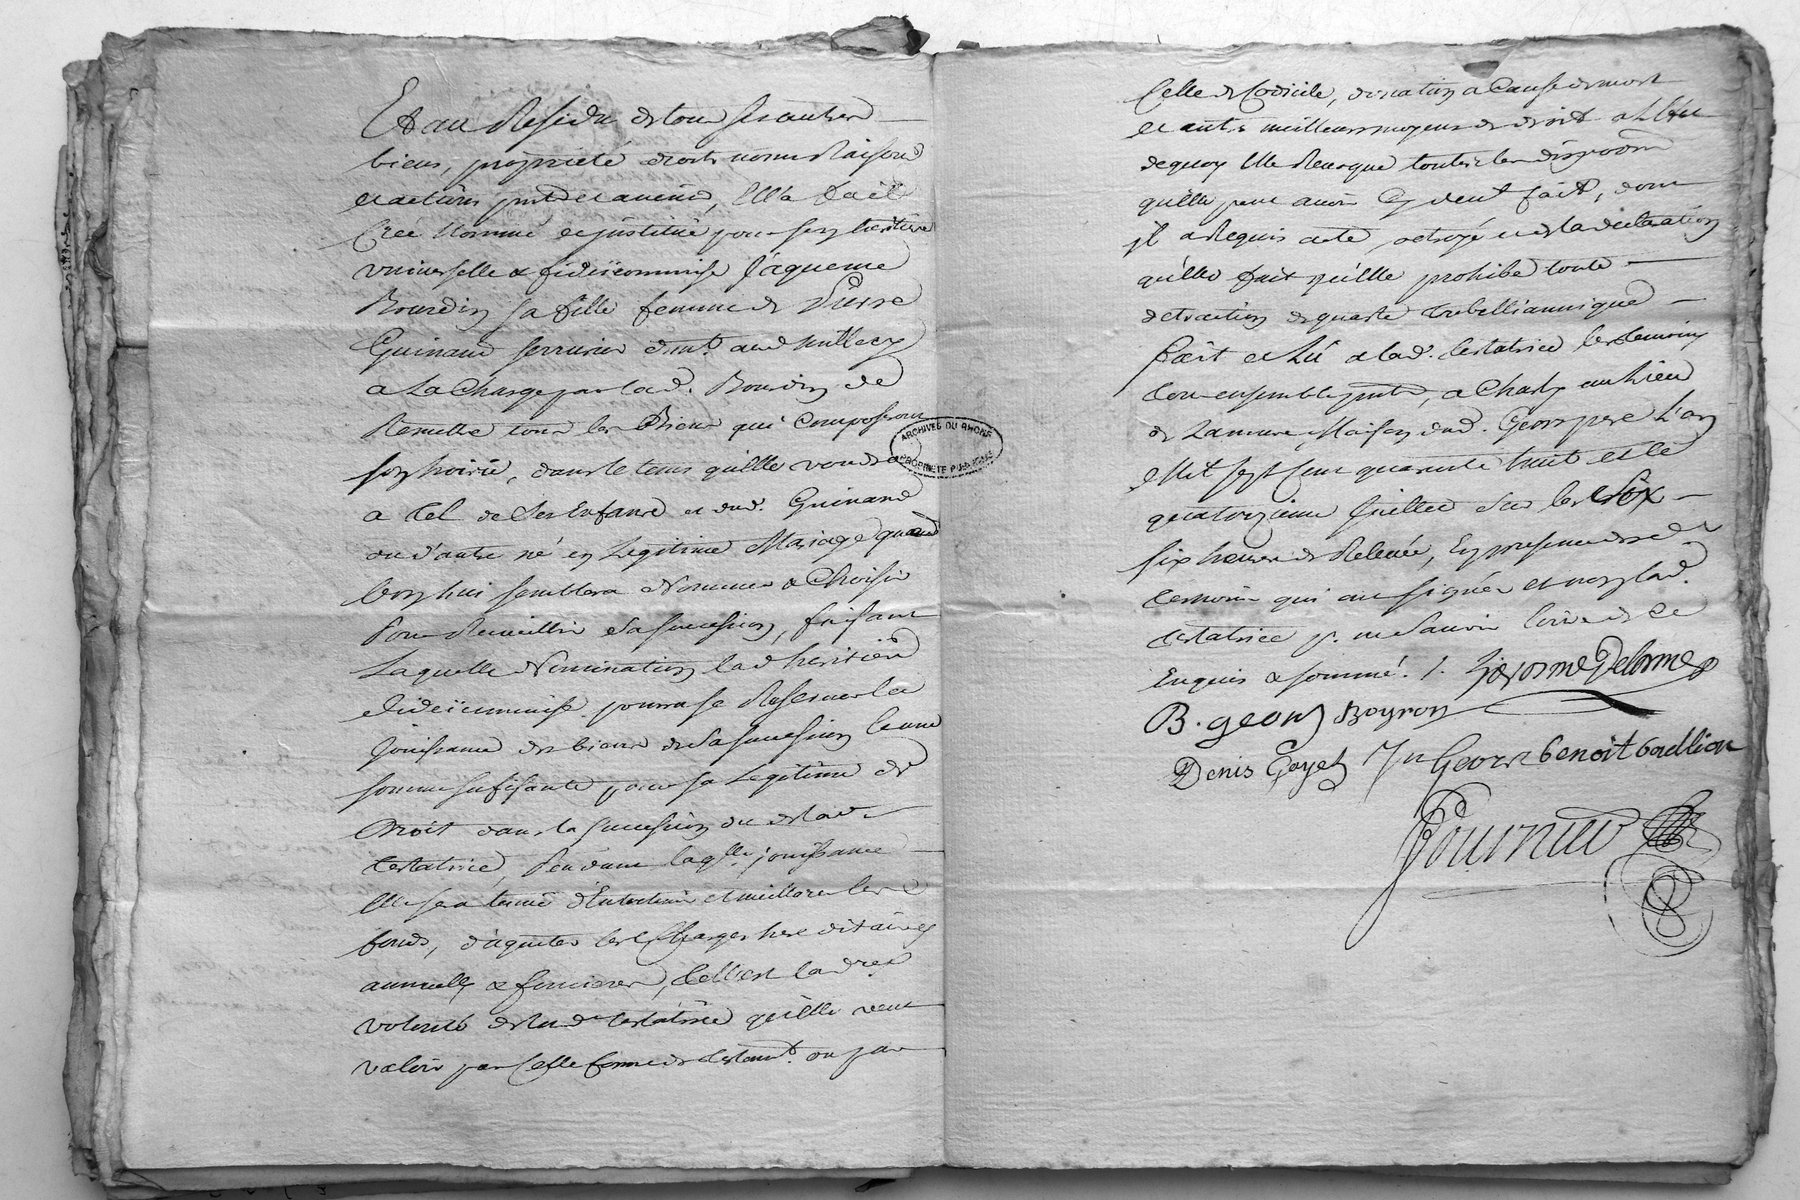 Et au Residu de tous ses autres
biens, propriété droits noms Raisons
et actions pnts et avenir, Elle a fait
Créé Nommé et jnstitué pour son héritière
vniverselle & fideïcommise Jaqueme
Bourdin sa fille femme de Pierre
Guinand serrurier demt. aud Millery
a La Charge par lad. Bourdin de
Remettre tous les Biens qui Composeront
son hoirie, dans le tems qu'elle voudra
a tel de Ses Enfans et dud. Guinand
ou d'autre né en Legitime Mariage quand
bon lui semblera Nommer & Choisir
Pour Recueillir sa succession, faisant
Laquelle Nomination lad heritiere
fideïcommise pourra se Reserver la
Jouissance des biens de sa succession & une
somme sufisante pour sa Legitime de
Droit dans la succession de lad.
testatrice, Pendant laqlle jouissance
Elle sera tenue d'Entretenir et meilleorer les
fonds, d'aquiter les Charges hereditaires
annuelles & foncieres, Telle est la dre
volonté de lad testatrice qu'elle veut
valoir par Cette forme de testamt. ou par
Celle de Codicile, donation a Cause de mort
et autre meilleurs moyens de droit
dequoy Elle Revoque toutes les dispoons
qu'elle peut avoir Cy devt fait, dont
jl a Requis acte octroyé et de la declaration
qu'elle fait qu'elle prohibe toute
detraction de quarte trebellianique
fait et Lû a lad. testatrice les temoins
tous ensemble pnts, a Charly au Lieu
de Lamure Maison dud. Geors pere L'an
Mil sept Cent quarante huit et le
quatorzieme Juillet Sur les six
six heures de Relevée, En presence desd.
temoins qui ont signés et non lad.
testatrice p. ne Sauoir Ecrire de Ce
Enquis & sommé. /. Gierosme Delorme
B. geors Boyron
Denis Goyet Jn Geors benoit boullion
Fournier
ARCHIVES DU RHÔNE
PROPRIÉTÉ PUBLIQUE